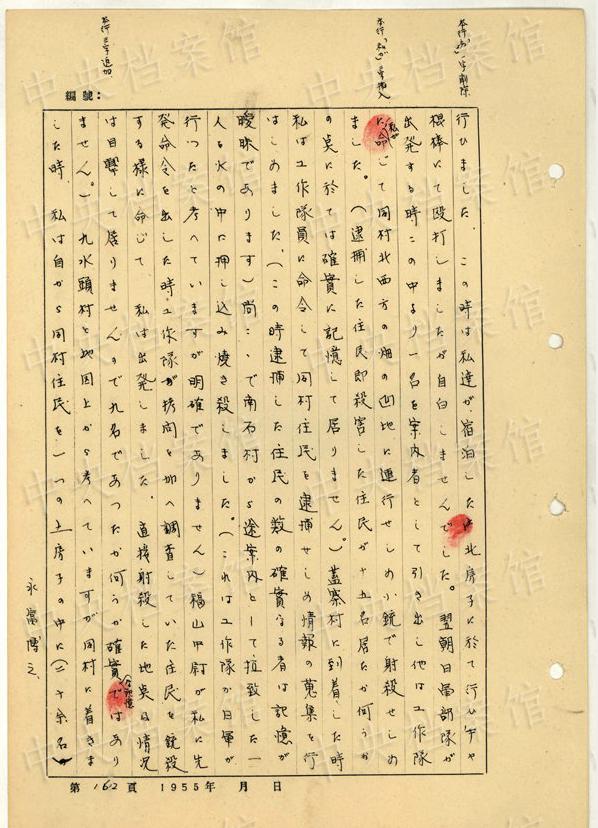 本行「お」一字削除
本行「私が」二字挿入
本行三字追加
編號：
行ひました。この時は私達が宿泊した北房子に於て行ひ
棍棒にて殴打しましたが自白しませんでした。翌朝日富部隊が
出発する時この中より一名を案内者として引き出し他は工作隊
に私が命じて同村北西方の畑の凹地に連行せしめ小銃で射殺せしめ
ました。（逮捕した住民即殺害した住民が十五名居たか何うか
の点に於ては確實に記憶して居りません。）蓋寨村に到着した時
私は工作隊員に命令して同村住民を逮捕せしめ情報の蒐集を行
はしめました、（この時逮捕した住民の数の確實なる者は記憶が
曖昧であります）尚こゝで南石村から途案内として拉致した一
人を火の中に押し込み焼き殺しました。（これは工作隊か日軍が
行つたと考へていますが明確でありません）福山中尉が私に先
発命令を出した時、工作隊が拷問を加へ調査していた住民を銃殺
する様に命じて、私は出発しました。直接射殺した地点及情況
は目撃して居りませんので九名であつたか何うか確實ではあり
ません。）九水頭村と地図上から考へていますが同村に着きま
した時、私は自から同村住民を一つの土房子の中に（二十余名）
永富博之
第162頁 1955年 月 日
中央档案馆